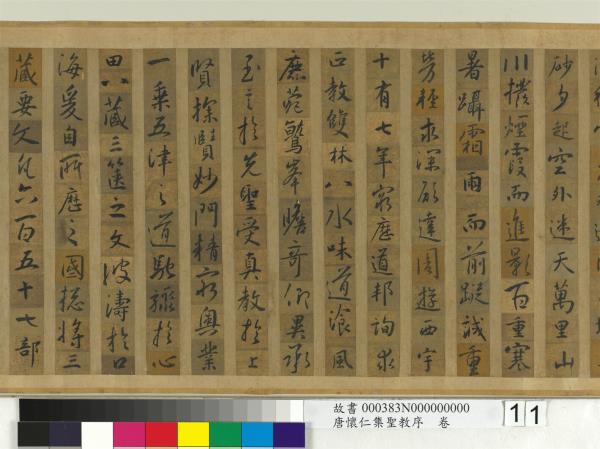 砂夕起空外迷天萬里山
川撥煙霞而進影百重寒
暑躡霜雨而前蹤誠重
勞輕求深願達周遊西宇
十有七年窮歷道邦詢求
正教雙林八水味道飡風
鹿菀鷲峯瞻奇仰異承
至言於先聖受真教於上
賢探賾妙門精窮奧業
一乘五津之道馳驟於心
田八藏三篋之文波濤於口
海爰自所歷之國捴將三
藏要文凡六百五十七部
故書 000383N000000000
唐懷仁集聖教序 卷
11